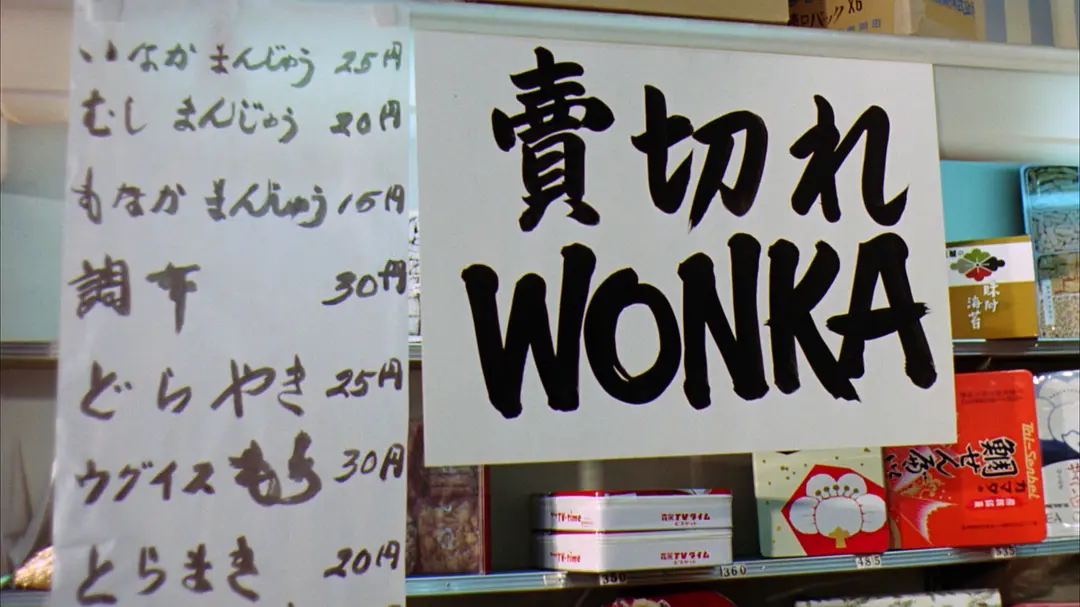 いなかまんじゅう 25円
むしまんじゅう 20円
もなかまんじゅう 15円
調布 30円
どらやき 25円
ウグイスもち 30円
とらまき 20円
賣切れ
WONKA
パック X6
味附
海苔
Tai-Senbei
鯛せんべい
カマタ
TV-time
TV-time
350
360
485
335